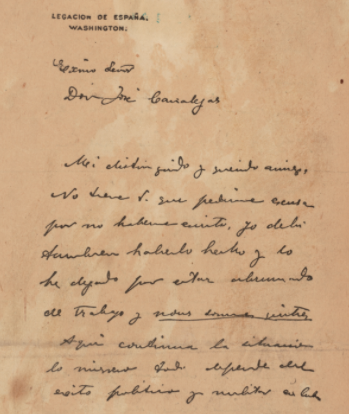 LEGACION DE ESPAÑA.
WASHINGTON.
Excmo Señor
Don José Canalejas
Mi distinguido y querido amigo,
No tiene V. que pedirme excusa
por no haberme escrito, yo debi
tambien haberlo hecho y lo
he dejado por estar abrumado
de trabajo y nous sommes quittes
Aquí continua la situacion
lo mismo todo depende del
exito politico y militar en Cuba